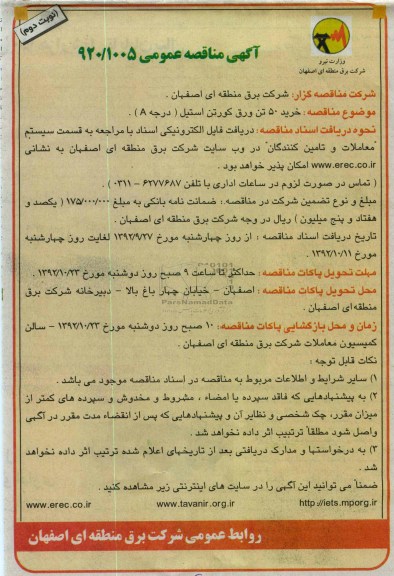 (نوبت دوم)
وزارت نیرو
شرکت برق منطقه ای اصفهان
آگهی مناقصه عمومی ۹۲۰/۱۰۰۵
شرکت مناقصه گزار: شرکت برق منطقه ای اصفهان .
موضوع مناقصه: خرید ۵۰ تن ورق کورتن استیل ( درجه A ) .
نحوه دریافت اسناد مناقصه: دریافت فایل الکترونیکی اسناد با مراجعه به قسمت سیستم
"معاملات و تامین کنندگان" در وب سایت شرکت برق منطقه ای اصفهان به نشانی
www.erec.co.ir امکان پذیر خواهد بود .
( تماس در صورت لزوم در ساعات اداری با تلفن ۶۲۷۷۶۸۷ - ۰۳۱۱ ) .
مبلغ و نوع تضمین شرکت در مناقصه.: ضمانت نامه بانکی به مبلغ ۱۷۵/۰۰۰/۰۰۰ ( یکصد و
هفتاد و پنج میلیون ) ریال در وجه شرکت برق منطقه ای اصفهان .
تاریخ دریافت اسناد مناقصه : از روز چهارشنبه مورخ ۱۳۹۲/۹/۲۷ لغایت روز چهارشنبه
مورخ ۱۳۹۲/۱۰/۱۱ .
مهلت تحویل پاکات مناقصه: حداکثر تا ساعت ۹ صبح روز دوشنبه مورخ ۱۳۹۲/۱۰/۲۳ .
محل تحویل پاکات مناقصه: اصفهان - خیابان چهار باغ بالا - دبیرخانه شرکت برق
منطقه ای اصفهان .
زمان و محل بازگشایی پاکات مناقصه: ۱۰ صبح روز دوشنبه مورخ ۱۳۹۲/۱۰/۲۳ - سالن
کمیسیون معاملات شرکت برق منطقه ای اصفهان .
نکات قابل توجه :
۱) سایر شرایط و اطلاعات مربوط به مناقصه در اسناد مناقصه موجود می باشد .
۲) به پیشنهادهایی که فاقد سپرده یا امضاء ، مشروط و مخدوش و سپرده های کمتر از
میزان مقرر، چک شخصی و نظایر آن و پیشنهادهایی که پس از انقضاء مدت مقرر در آگهی
واصل شود مطلقاً ترتیبی اثر داده نخواهد شد .
۳) به درخواستها و مدارک دریافتی بعد از تاریخهای اعلام شده ترتیب اثر داده نخواهد
شد .
ضمناً می توانید این آگهی را در سایت های اینترنتی زیر مشاهده کنید .
http://iets.mporg.ir www.tavanir.org.ir www.erec.co.ir
روابط عمومی شرکت برق منطقه ای اصفهان